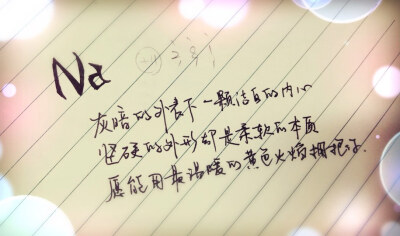 Na
+11 2 8 1
灰暗的外表下一颗洁白的内心
坚硬的外形却是柔软的本质
愿能用最温暖的黄色火焰拥抱你.